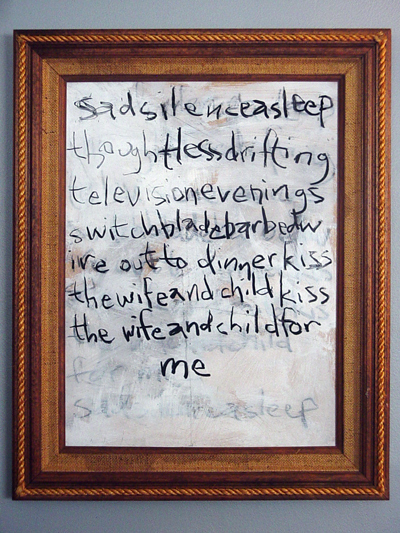 sadsilenceasleep
thoughtlessdrifting
televisionevenings
switchbladebarbedw
ire out to dinnerkiss
thewifeandchildkiss
the wifeandchildfor
me